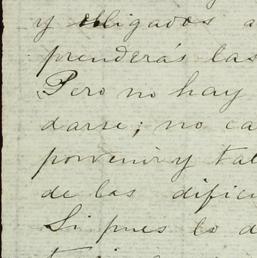 y obligados a
prenderás las
Pero no hay
darse; no ca
porvenir y tal
de las dificu
Si pues lo d